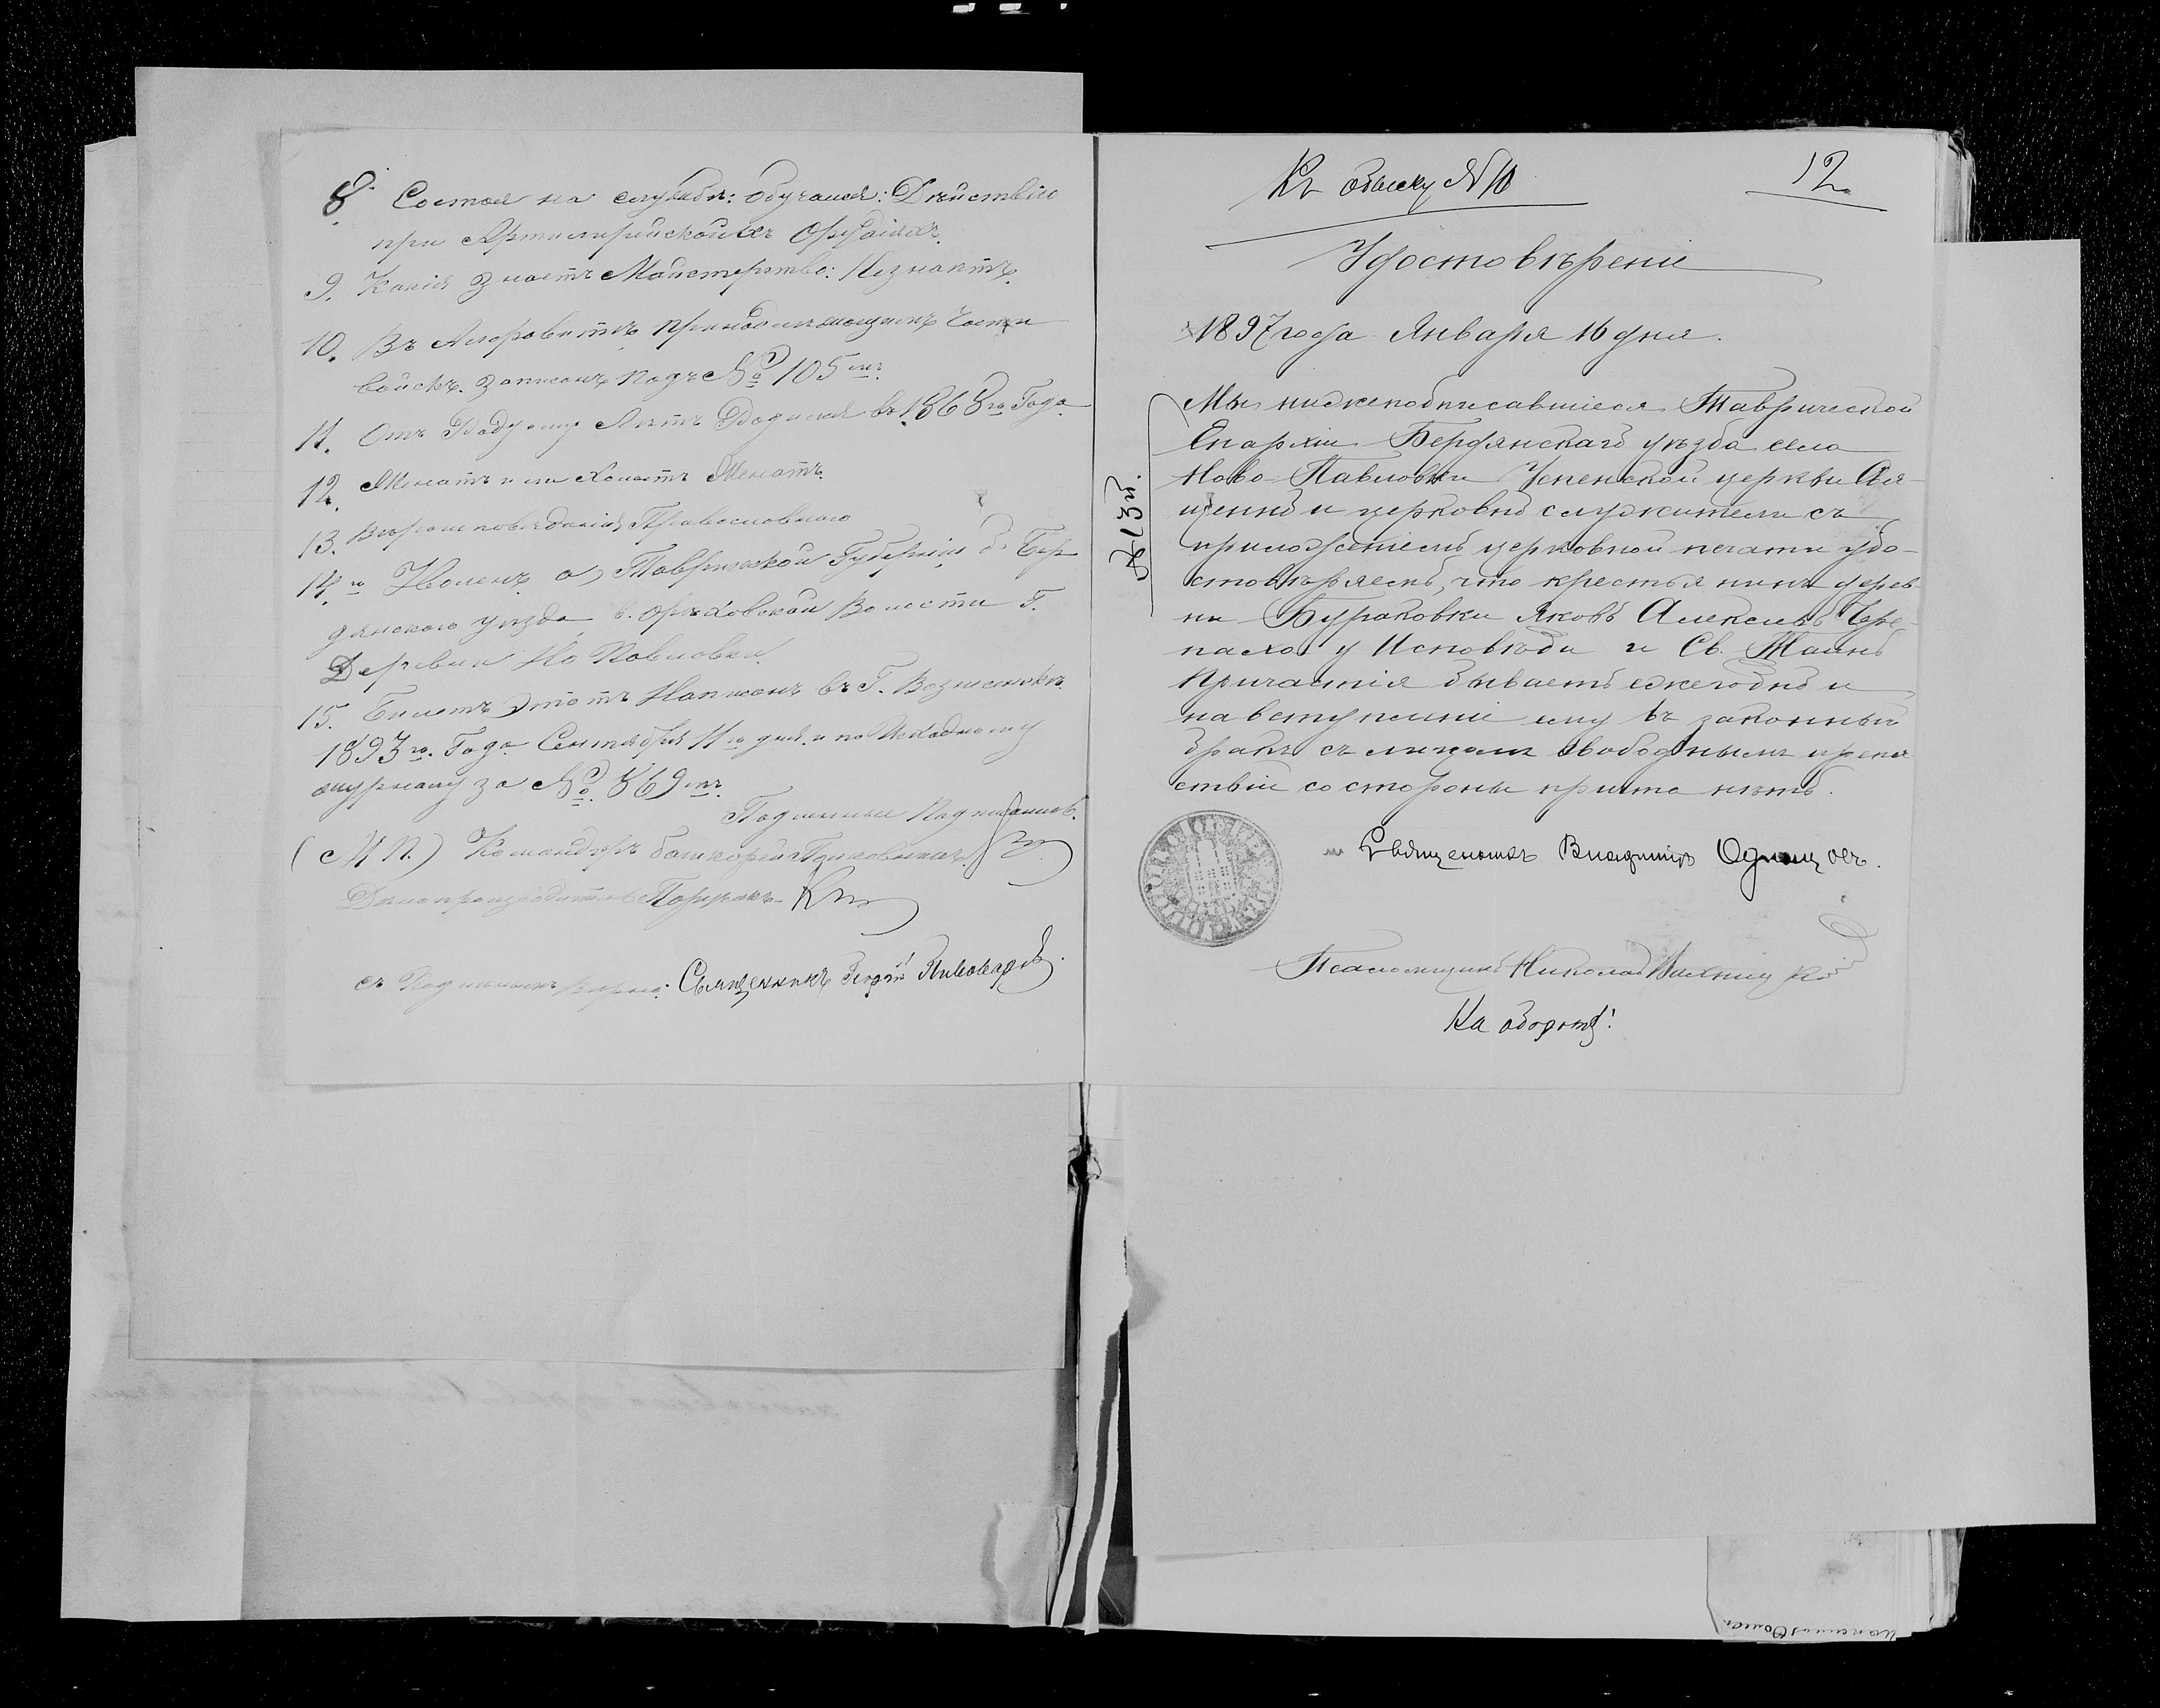 8. Состоя на службѣ: обучался: Дѣйствію
при Артилерійскойхъ Орудіяхъ.
9. Какія знаетъ Майстерство: Незнаетъ.
10. Въ Алфовитѣ принадлежащимъ Части
войскъ. записанъ подъ № 105мъ.
11. Отъ Роду ему Лѣтъ Родился въ 1868го Года
12. Женатъ или Холостъ Женатъ.
13. Вѣроисповѣданія Православного
14. и Уволенъ а, Таврической Губерніи б. Бер
дянского уѣзда в. Орѣховской Волости Г.
Деревни Но Павловки.
15. Билетъ Этотъ Написанъ въ Г. Вознесенскѣ
1893го. Года Сентября 11го дня. и по Исходному
журналу за № 869мъ.
Подлинные Подписали.
(М П.) Командиръ батареи Полковникъ
Делопроизводитель Поручикъ
съ Подлиннымъ вѣрно: Священникъ Георгій Пивоваровъ.
Къ обыску № 10
12.
Удостовѣреніе
1897 года Января 16 дня.
№ 13й.
Мы нижеподписавшіеся Таврической
Епархіи Бердянскаго уѣзда села
Ново-Павловки Успенской церкви Свя-
щенно и церковно служители съ
приложеніемъ церковной печати удо-
стовѣряемъ, что крестьянинъ дерев
ни Бураковки Яковъ Алексѣевъ Чере-
паха у Исповѣди и Св. Таинъ
Причастія бываетъ ежегодно и
на вступленіе ему въ законный
бракъ съ лицемъ свободнымъ препя
ствій со стороны причта нѣтъ.
Священникъ Владиміръ Одинцовъ.
Псаломщикъ Николай
На оборотѣ!